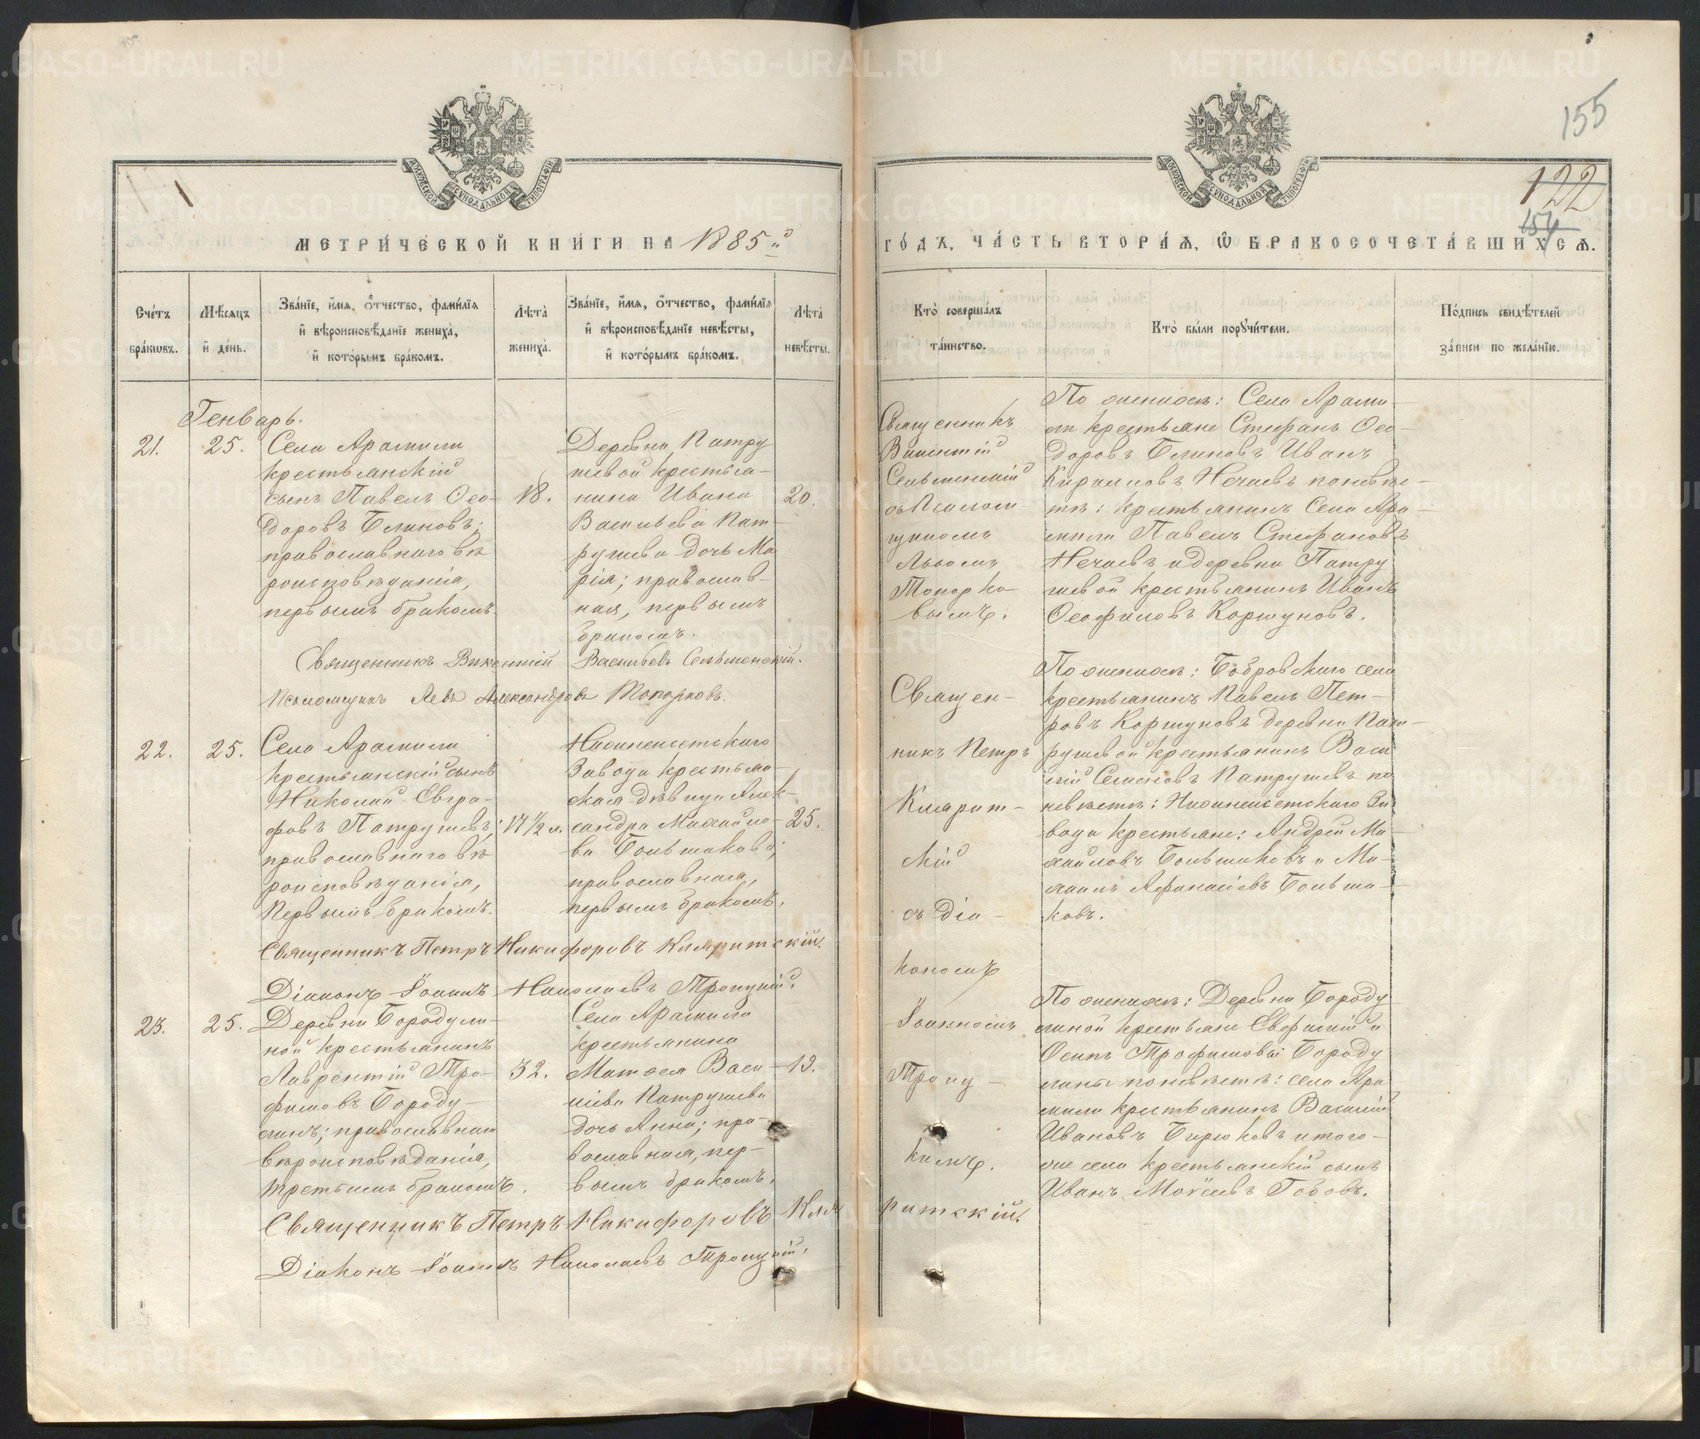 155
122
154
МЕТРИ́ЧЕСКОЙ КНИ́ГИ НА 1885й
ГО́ДЪ, ЧА́СТЬ ВТОРА́Ѧ, Ѽ БРАКОСОЧЕТА́ВШИХСѦ.
Счетъ браковъ.
Мѣсяцъ и день.
Званіе, имя, отчество, фамилія
и вѣроисповѣданіе жениха,
и которымъ бракомъ.
Лѣта жениха.
Званіе, имя, отчество, фамилія
и вѣроисповѣданіе невѣсты,
и которымъ бракомъ.
Лѣта невѣсты.
Кто совершалъ
таинство.
Кто были поручители.
Подпись свидѣтелей
записи по желанію.
Генварь.
21.
25.
Села Арамили
крестьянскій
сынъ Павелъ Ѳео-
доровъ Блиновъ;
православнаго вѣ
роисповѣданія,
первымъ бракомъ.
18.
Деревни Патру
шевой крестья-
нина Ивана
Васильева Пат-
рушева дочь Ма
рія; православ-
ная, первымъ
бракомъ.
20.
Священникъ
Викентій
Сельменскій
съ Псалом-
щикомъ
Львомъ
Топорко-
вымъ.
По женихѣ: Села Арами-
ли крестьяне Стефанъ Ѳео-
доровъ Блиновъ Иванъ
Кирилловъ Нечаевъ по невѣс-
тѣ: крестьянинъ Села Ара-
мили Павелъ Стефановъ
Нечаевъ и деревни Патру
шевой крестьянинъ Иванъ
Ѳеофиловъ Коршуновъ.
Священникъ Викентій Васильевъ Сельменскій.
Псаломщикъ Левъ Александровъ Топорковъ.
22.
25.
Села Арамили
крестьянскій сынъ
Николай Евгра-
фовъ Патрушевъ;
православнаго вѣ
роисповѣданія,
первымъ бракомъ.
17 1/2 л.
Нижнеисетскаго
Завода крестьян-
ская дѣвица Алек-
сандра Михайло-
ва Большакова;
православная,
первымъ бракомъ.
25.
Священ-
никъ Петръ
Кларит-
скій
съ Діа-
кономъ
Іоанномъ
Троиц-
кимъ.
По женихѣ: Бобровскаго села
крестьянинъ Павелъ Пет-
ровъ Коршуновъ деревни Пат-
рушевой крестьянинъ Васи
лій Семеновъ Патрушевъ по
невѣстѣ: Нижнеисетскаго За-
вода крестьяне: Андрей Ми-
хайловъ Большаковъ и Ми-
хаилъ Афанасіевъ Больша-
ковъ.
Священникъ Петръ Никифоровъ Кларитскій.
Діаконъ Іоаннъ Николаевъ Троицкій.
23.
25.
Деревни Бородули-
ной крестьянинъ
Лаврентій Тро-
фимовъ Бороду-
линъ; православнаго
вѣроисповѣданія,
третьимъ бракомъ.
32.
Села Арамили
крестьянина
Матѳея Васи-
ліева Патрушева
дочь Анна; пра-
вославная, пер-
вымъ бракомъ.
19.
По женихѣ: Деревни Бороду
линой крестьяне Евфимій и
Осипъ Трофимовы Бороду
лины по невѣстѣ: села Ара
мили крестьянинъ Василій
Ивановъ Бирюковъ и того-
же села крестьянскій сынъ
Иванъ Моѵсеевъ Гобовъ.
Священникъ Петръ Никифоровъ Кларитскій.
Діаконъ Іоаннъ Николаевъ Троицкій.